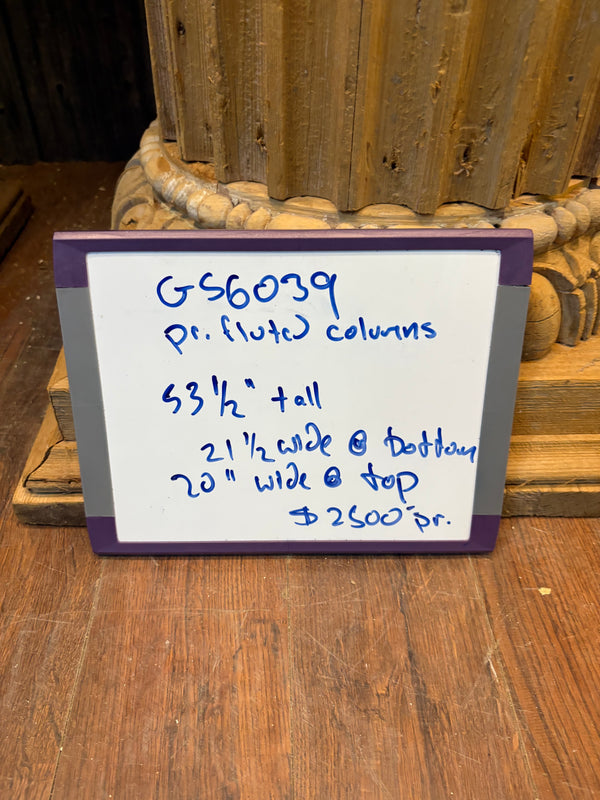 GS6039
pr. fluted columns
53 1/2" tall
21 1/2 wide @ bottom
20" wide @ top
$2500- pr.